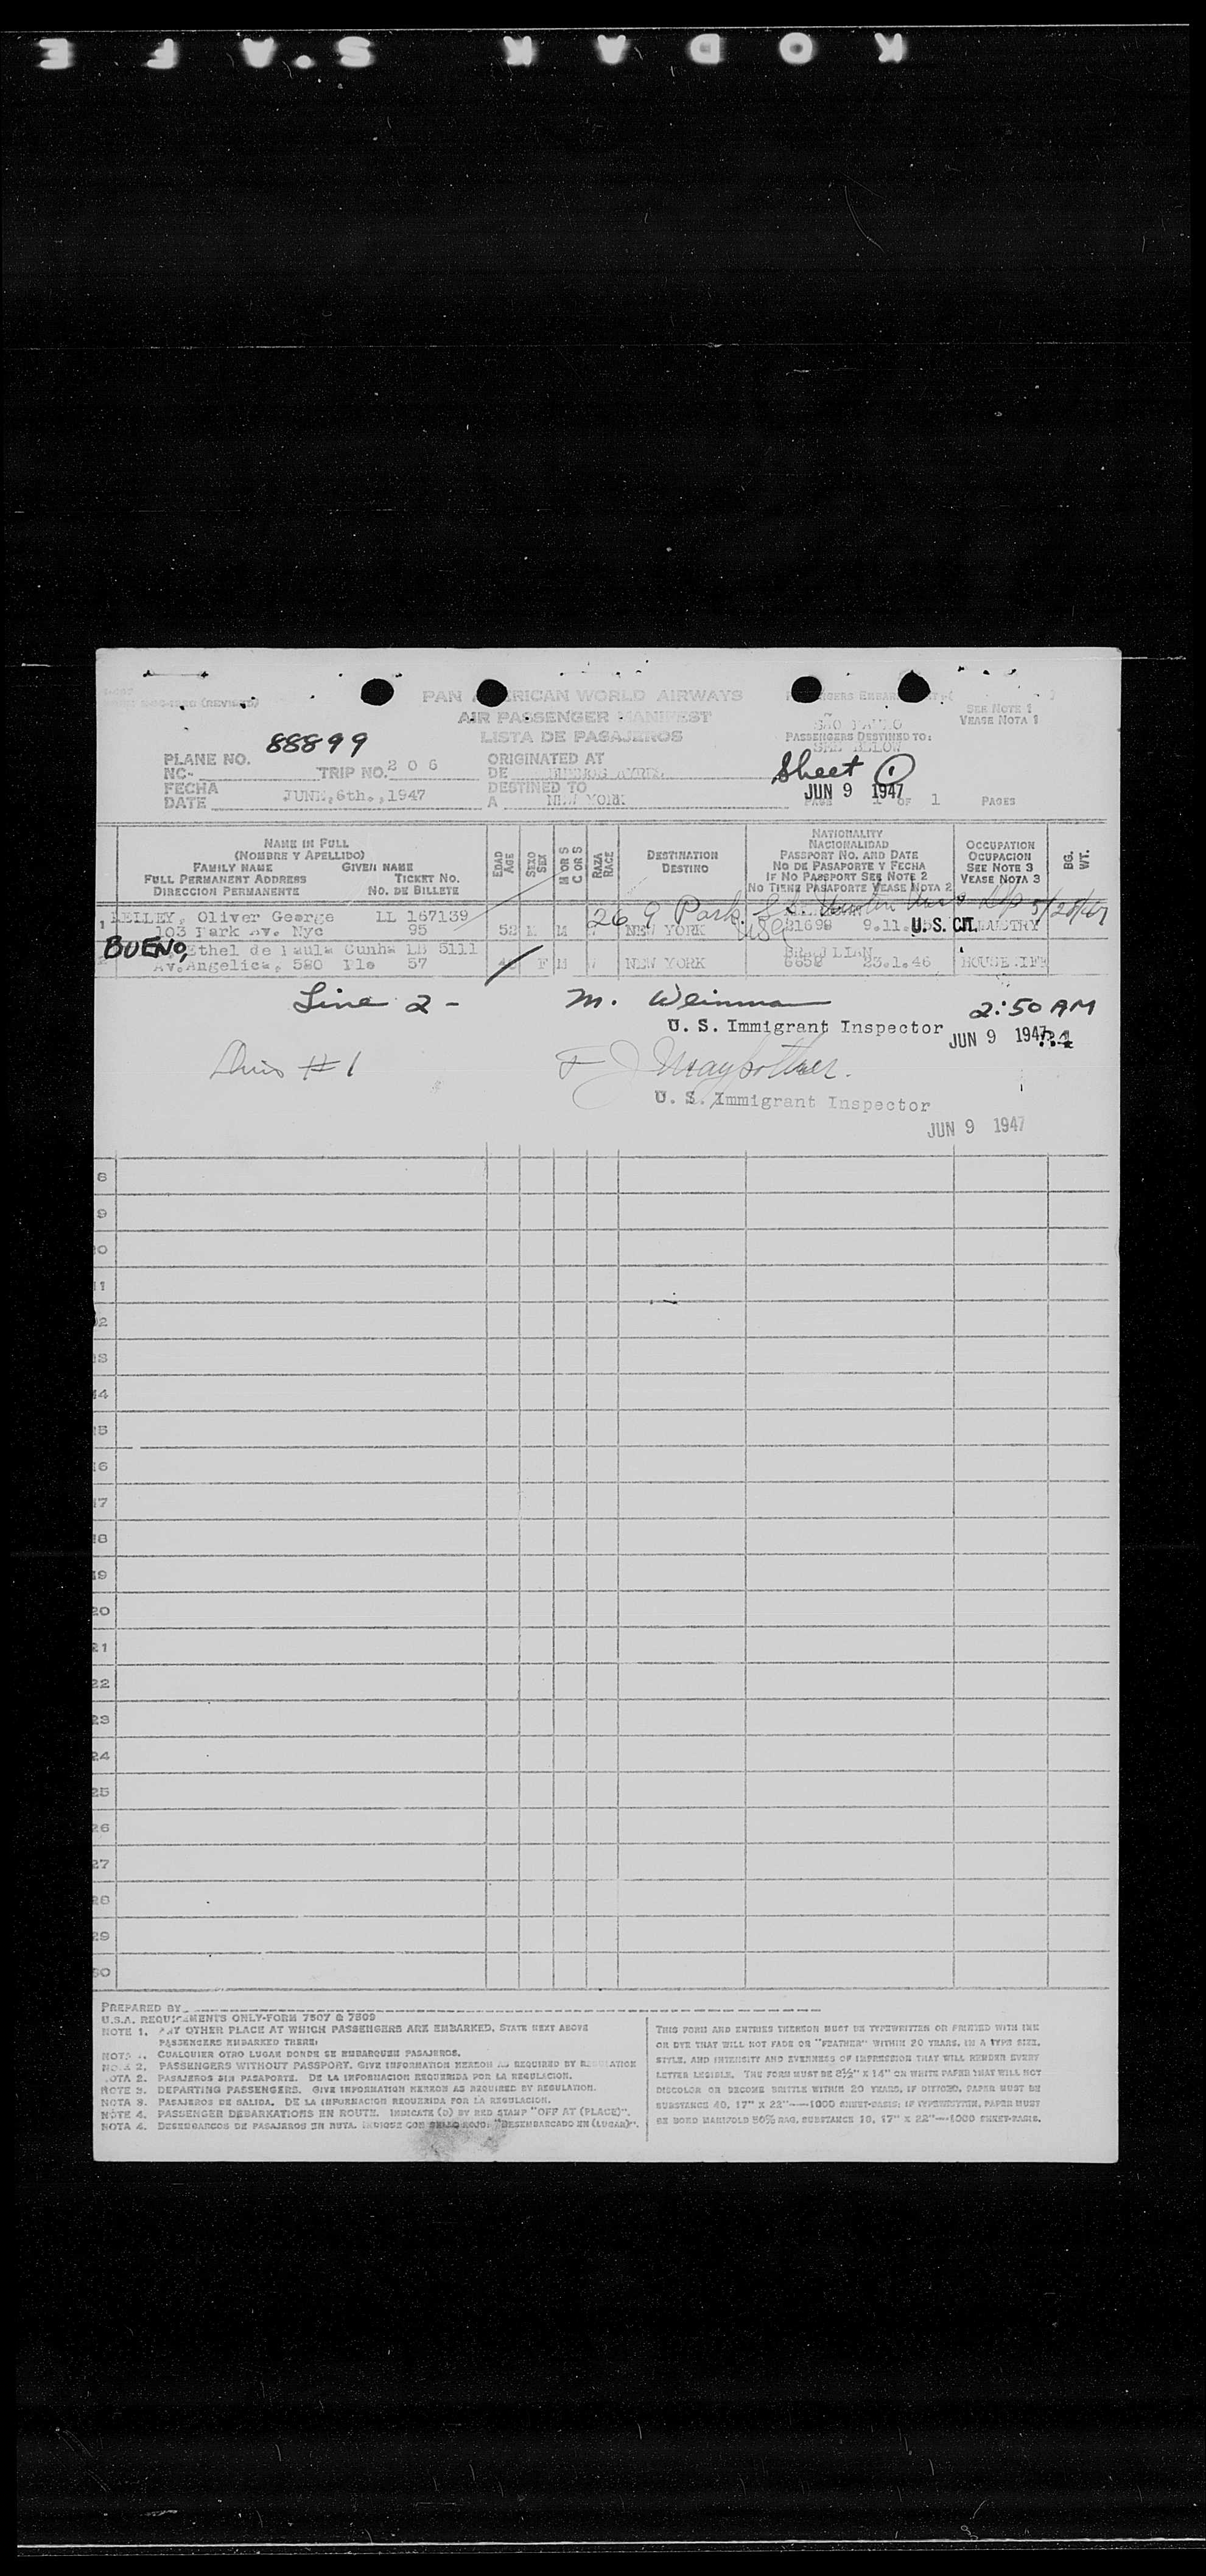 KODAK S.A F E
PAN AMERICAN WORLD AIRWAYS
AIR PASSENGER MANIFEST
LISTA DE PASAJEROS
PASSENGERS EMBARKED AT:
SÃO PAULO
PASSENGERS DESTINED TO:
SEE BELOW
SEE NOTE 1
VEASE NOTA 1
PLANE NO. 88899
NC- TRIP NO. 206
FECHA
DATE JUNE, 6th., 1947
ORIGINATED AT
DE BUENOS AYRES
DESTINED TO
A NEW YORK
Sheet 1
JUN 9 1947
PAGE 1 OF 1 PAGES
NAME IN FULL
(NOMBRE Y APELLIDO)
FAMILY NAME GIVEN NAME
FULL PERMANENT ADDRESS TICKET NO.
DIRECCION PERMANENTE NO. DE BILLETE
EDAD
AGE
SEXO
SEX
M OR S
C OR S
RAZA
RACE
DESTINATION
DESTINO
NATIONALITY
NACIONALIDAD
PASSPORT NO. AND DATE
NO DE PASAPORTE Y FECHA
IF NO PASSPORT SEE NOTE 2
NO TIENE PASAPORTE VEASE NOTA 2
OCCUPATION
OCUPACION
SEE NOTE 3
VEASE NOTA 3
BG.
WT.
1 Oliver George LL 167139 26 9 Park
103 Park Av. Nyc 95 52 M M NEW YORK 9.11. U.S. CIT. INDUSTRY
BUENO, Ethel de Paula Cunha LB 5111 BRAZILIAN
Av. Angelica, 580 Plo 57 F M NEW YORK 23.1.46 HOUSEWIFE
Line 2 - M. Weinman 2:50 AM
U. S. Immigrant Inspector JUN 9 1947
#1
U. S. Immigrant Inspector
JUN 9 1947
8
9
10
11
12
13
14
15
16
17
18
19
20
21
22
23
24
25
26
27
28
29
30
PREPARED BY
U.S.A. REQUIREMENTS ONLY-FORM 7507 & 7509
NOTE 1. ANY OTHER PLACE AT WHICH PASSENGERS ARE EMBARKED, STATE NEXT ABOVE
PASSENGERS EMBARKED THERE.
NOTA 1. CUALQUIER OTRO LUGAR DONDE SE EMBARQUEN PASAJEROS.
NOTE 2. PASSENGERS WITHOUT PASSPORT. GIVE INFORMATION HEREON AS REQUIRED BY REGULATION
NOTA 2. PASAJEROS SIN PASAPORTE. DE LA INFORMACION REQUERIDA POR LA REGULACION.
NOTE 3. DEPARTING PASSENGERS. GIVE INFORMATION HEREON AS REQUIRED BY REGULATION.
NOTA 3. PASAJEROS DE SALIDA. DE LA INFORMACION REQUERIDA FOR LA REGULACION.
NOTE 4. PASSENGER DEBARKATIONS EN ROUTE. INDICATE (D) BY RED STAMP "OFF AT (PLACE)".
NOTA 4. DESEMBARCOS DE PASAJEROS EN RUTA. INDIQUE CON SELLO ROJO: "DESEMBARCADO EN (LUGAR)".
THIS FORM AND ENTRIES THEREON MUST BE TYPEWRITTEN OR PRINTED WITH INK
OR DYE THAT WILL NOT FADE OR "FEATHER" WITHIN 20 YEARS, IN A TYPE SIZE,
STYLE, AND INTENSITY AND EVENNESS OF IMPRESSION THAT WILL RENDER EVERY
LETTER LEGIBLE. THE FORM MUST BE 8½" X 14" ON WHITE PAPER THAT WILL NOT
DISCOLOR OR BECOME BRITTLE WITHIN 20 YEARS, IF DITTOED, PAPER MUST BE
SUBSTANCE 40, 17" X 22"—1000 SHEET-BASIS; IF TYPEWRITTEN, PAPER MUST
BE BOND MANIFOLD 50% RAG, SUBSTANCE 18, 17" X 22"—1000 SHEET-BASIS.